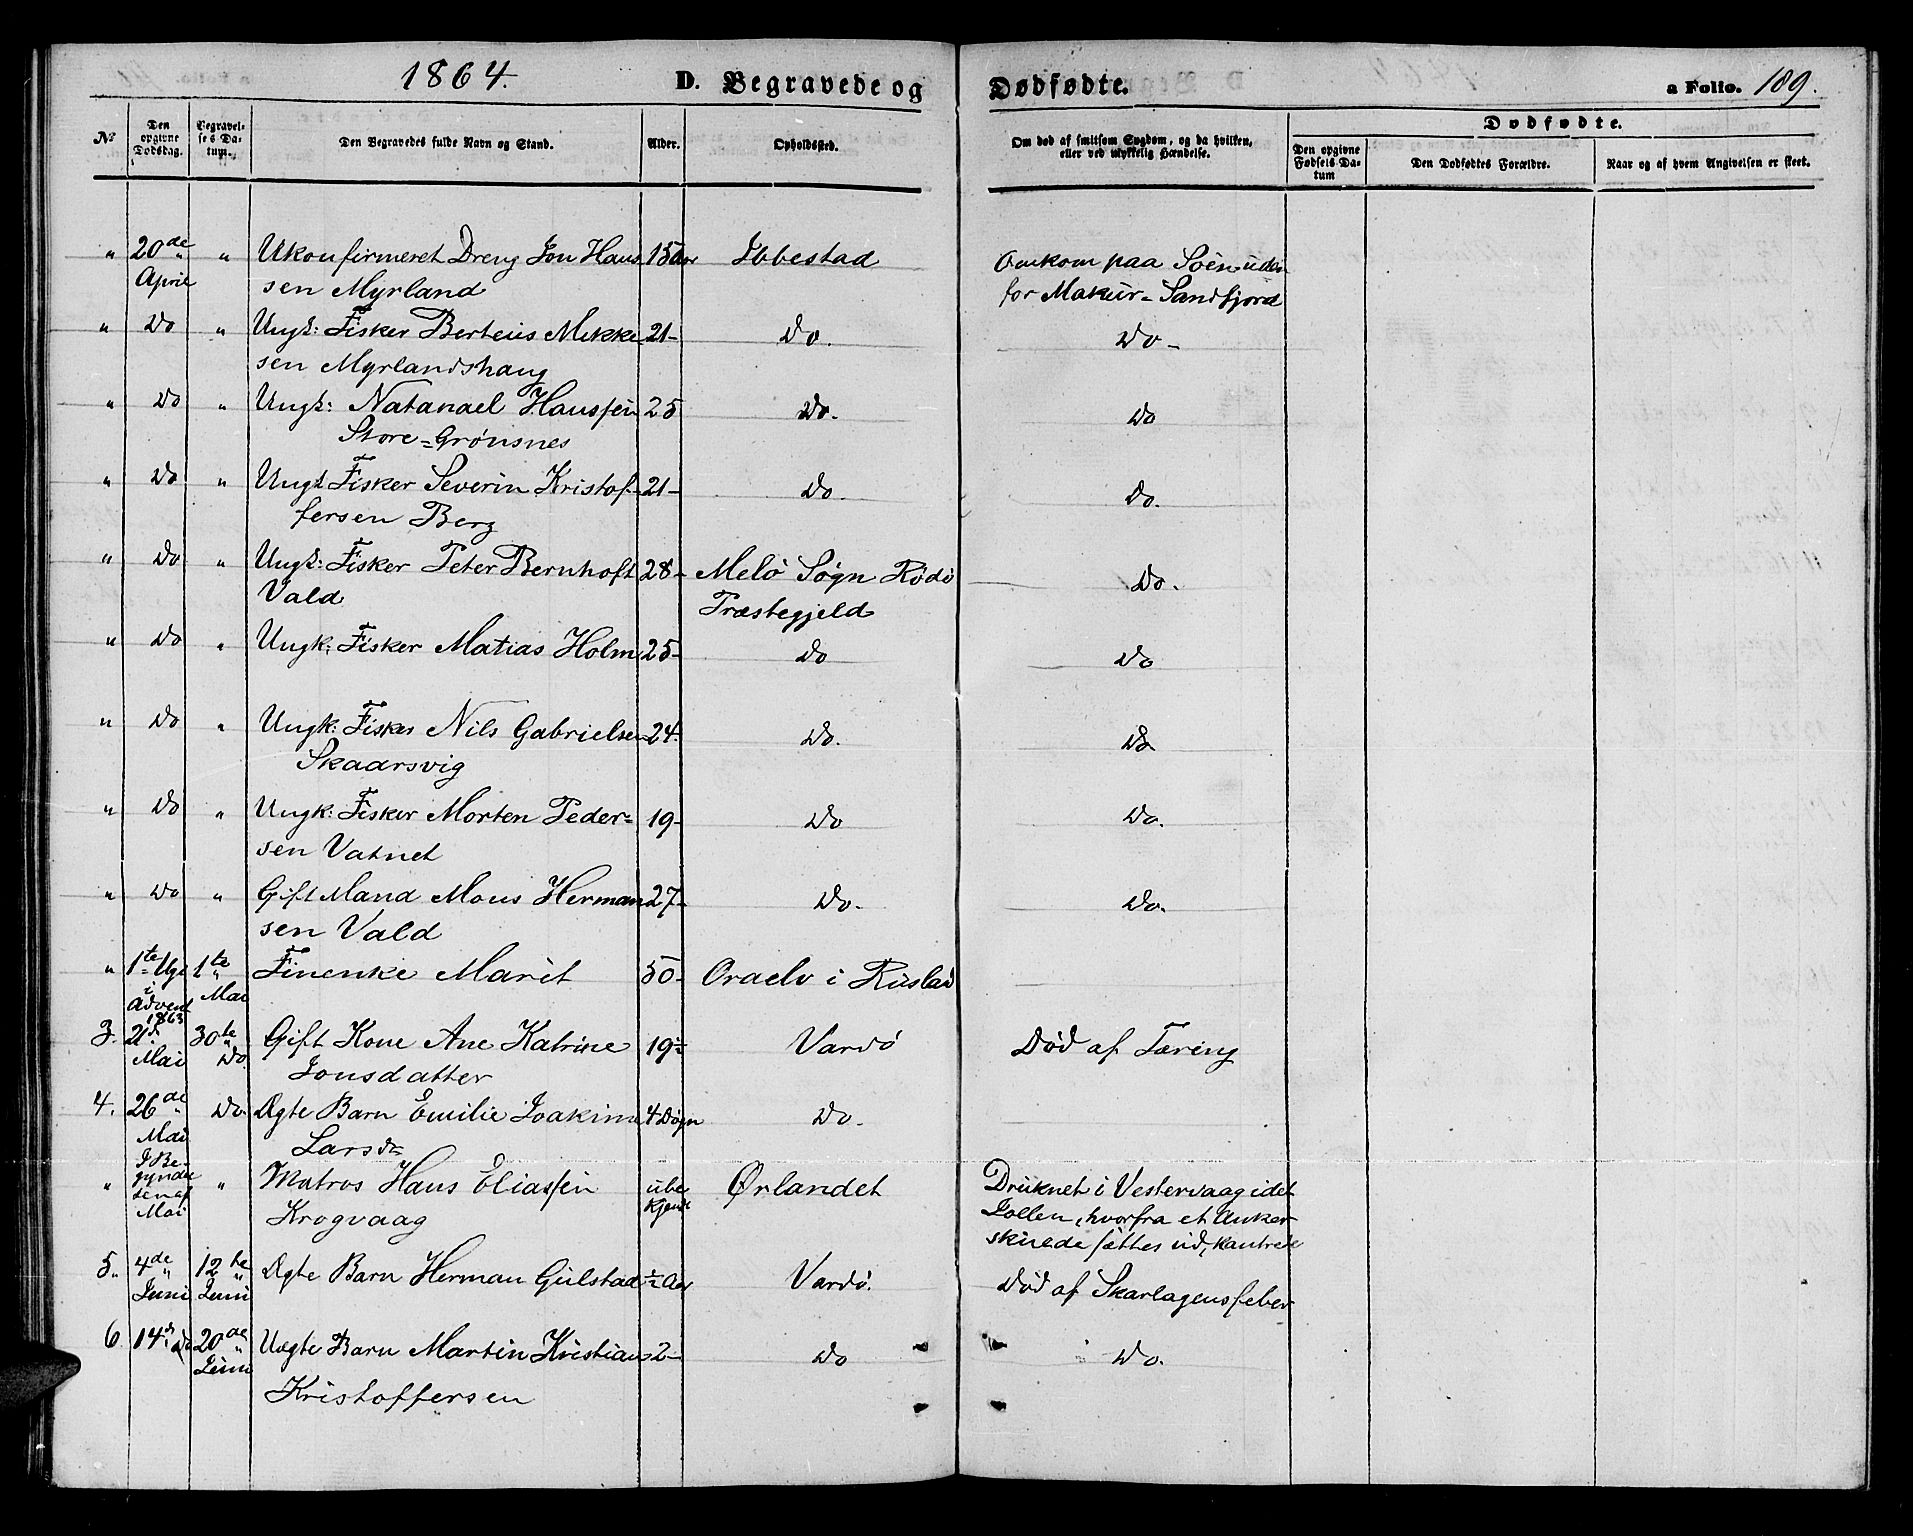 1864. D. Begravede og Dødfødte. a Folio. 189.
№ Den opgivne Dødsdag. Begravelses Datum. Den Begravedes fulde Navn og Stand. Alder. Opholdssted. Om død af smitsom Sygdom, og da hvilken, eller ved ulykkelig Hændelse. Dødfødte.
Den opgivne Fødsels Datum Den Dødfødtes Forældre. Naar og af hvem Angivelsen er skeet.
" 20de " Ukonfirmeret Dreng Jon Hans 15 Aar Ibbestad Omkom paa Söen uden
April sen Myrland for Makur-Sandfjord
" Do " Ungk: Fisker Berteus Mikke 21- Do. Do-
sen Myrlandshaug
" Do " Ungk: Natanael Hanssen 25 Do. Do
Store-Grönsnes
" Do " Ungk Fisker Severin Kristof- 21- Do. Do.
fersen Berg
" Do " Ungk: Fisker Peter Bernhoft 28- Melö Sogn Rödö Do.
Vald Præstegjeld
" Do " Ungk: Fisker Matias Holm 25- Do Do
" Do " Ungk: Fisker Nils Gabrielsen 24. Do. Do
Skaarsvig
" Do " Ungk: Fisker Morten Peder- 19- Do Do.
sen Vatnet
" Do " Gift Mand Mons Herman 27- Do. Do.
sen Vald
" 1te Uge 1te Finenke Marit 50- i Rusland
i Advent 1863 Mai
3. 21de 30te Gift Kone Ane Katrine 19½ Vardö Död af Tæring
Mai Do. Jonsdatter
4. 26de Do. Ægte Barn Emilie Joakime 4 Dögn Do.
Mai Larsd.
" I Be- " Matros Hans Eliassen ube Ørlandet Druknet i Vestervaag idet
gyndel Krogvaag kjendt Jollen, hvorfra et Anker
sen af skulde sættes ud, kantrede
Mai
5. 4de 12te Ægte Barn Herman Gulstad ½ Aar Vardö. Död af Skarlagensfeber
Juni Juni
6 14de Do 20de Uægte Barn Martin Kristian 2- Do Do.
Juni Kristoffersen